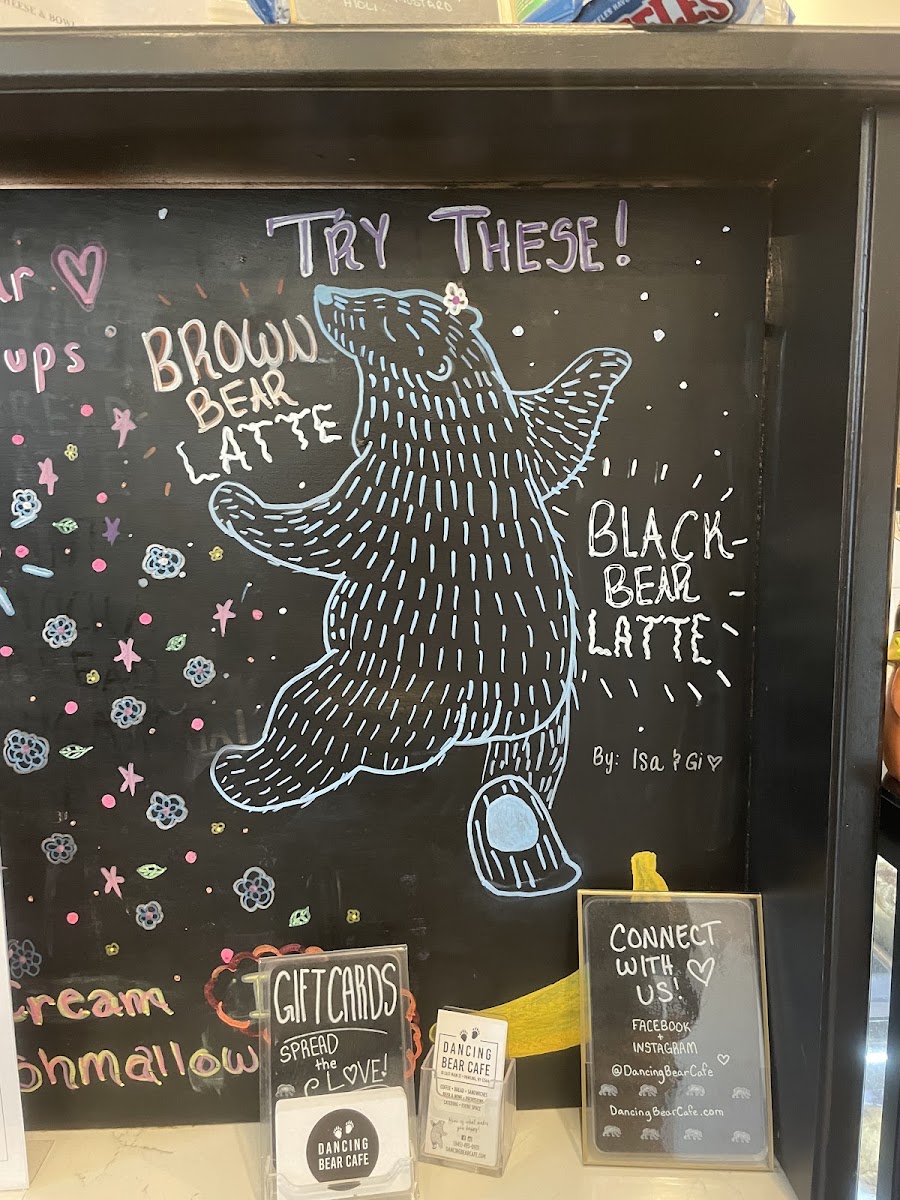 CHEESE & BOWL
MUSTARD
AIOLI
TRY THESE!
ups
BROWN
BEAR
LATTE
BLACK-
BEAR
LATTE
By: Isa & Gi
Cream
shmallow
GIFT CARDS
SPREAD
the
LOVE!
DANCING
BEAR CAFE
DANCING
BEAR CAFE
CONNECT
WITH
US!
FACEBOOK
+
INSTAGRAM
@DancingBearCafe
DancingBearCafe.com